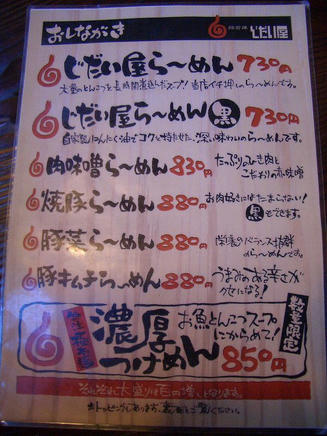 おしながき じだい屋
じだい屋らーめん 730円
大量のとんこつを長時間煮込んだスープ! 当店イチ押しのらーめんです。
じだい屋らーめん 黒 730円
自家製にんにく油でコクを持たせた、深い味わいのらーめんです。
肉味噌らーめん 830円 たっぷりのひき肉と
こだわりの赤味噌
焼豚らーめん 880円 お肉好きにはたまらない!
黒もできます。
豚菜らーめん 880円 栄養のバランス抜群
のらーめんです。
豚キムチらーめん 880円 うまみのある辛さが
クセになる!
濃厚つけめん お魚とんこつスープ
にからめて! 850円
数量限定
それぞれ大盛りは百の増しとなります。
トッピングもあります。裏面をご覧ください。